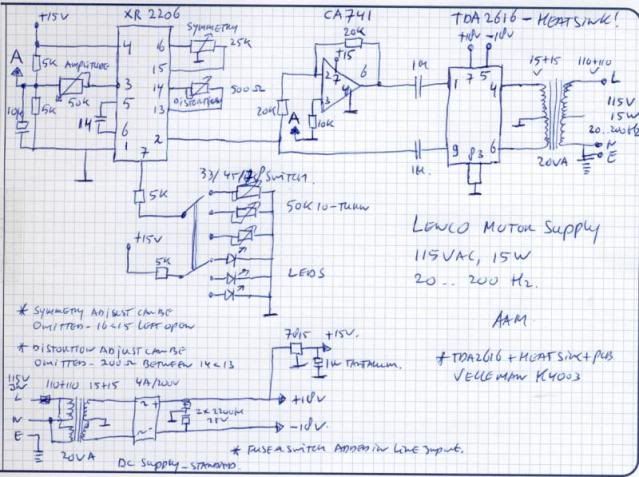 +15V
XR 2206
SYMMETRY
25K
CA741
TDA2616 - HEATSINK!
+18V -18V
A
5K
AMPLITUDE
50K
5K
4
3
5
6
1
7
16
15
14
13
2
500Ω
DISTORTION
20K
+15
2
7
6
4
3
10K
20K
A
1M
1M
1
7
5
4
9
8
3
6
15+15
110+110
L
115V
15W
20..200Hz
N
E
20VA
5K
33/45/78 SWITCH.
50K 10-TURN
+15V
5K
LEDS
LENCO MOTOR SUPPLY
115VAC, 15W
20..200 Hz.
AAM.
* SYMMETRY ADJUST CAN BE
OMITTED - 16 & 15 LEFT OPEN
* DISTORTION ADJUST CAN BE
OMITTED - 200Ω BETWEEN 14 & 13
* TDA2616 + HEATSINK + PCB
VELLEMAN K4003
7815
+15V.
1M TANTALUM.
115V
110+110
15+15
4A/200V
L
N
E
20VA
+18V
2x2200M
25V
-18V.
* FUSE & SWITCH ADDED IN LINE INPUT.
DC SUPPLY - STANDARD.